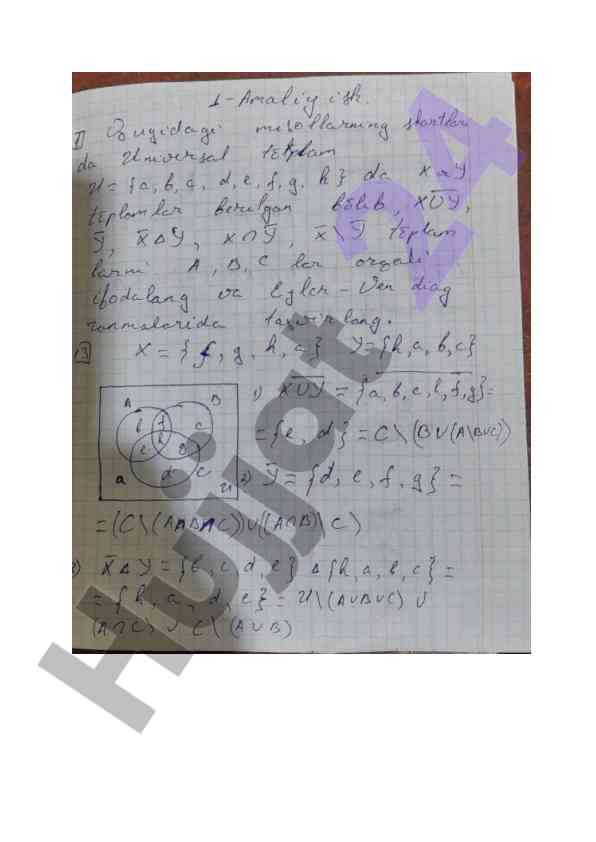 1-Amaliy ish.
I Quyidagi misollarning shartlari
da Universal to'plam
U = {a, b, c, d, e, f, g, h} da X va Y
to'plamlar berilgan bo'lib, X∪Y,
Y̅, X̅ΔY, X∩Y̅, X̅\Y̅ to'plam
larni A, B, C lar orqali
ifodalang va Eyler-Ven diag
rammalarida tasvirlang.
13 X = {f, g, h, a} Y = {h, a, b, c}
A B
b f c
h
e g
a d C
U
1) X∪Y = {a, b, c, h, f, g} =
= {e, d} = C\(B∪(A\B∪C))
2) Y̅ = {d, e, f, g} =
= (C\(A∩B∩C))∪((A∩B)\C)
3) X̅ΔY = {b, c, d, e} Δ {h, a, b, c} =
= {h, a, d, e} = U\(A∪B∪C) ∪
(A∩C) ∪ C\(A∪B)
Hujjat 24